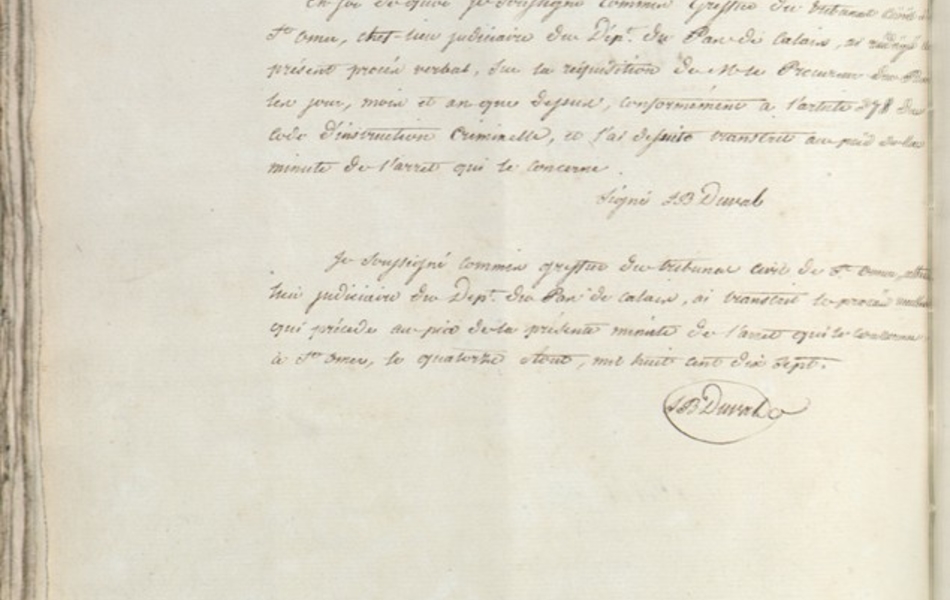 En foi de quoi je soussigné commis Greffier du tribunal civil de
St. Omer, chef-lieu judiciaire du Dépt. du Pas de Calais, ai rédigé le
présent procès verbal, sur la réquisition de Mr le Procureur du Roi
les jour, mois et an que dessus, conformément à l'article 378 du
code d'instruction Criminelle, et l'ai desuite transcrit au pied de la
minute de l'arrêt qui le concerne.
Signé JB Duval
Je soussigné commis greffier du tribunal civil de St. Omer, chef
lieu judiciaire du Dept. du Pas de Calais, ai transcrit le procès verbal
qui précède au pied de la présente minute de l'arrêt qui le concerne,
à St. Omer, le quatorze Aout, mil huit cent dix sept.
JB Duval